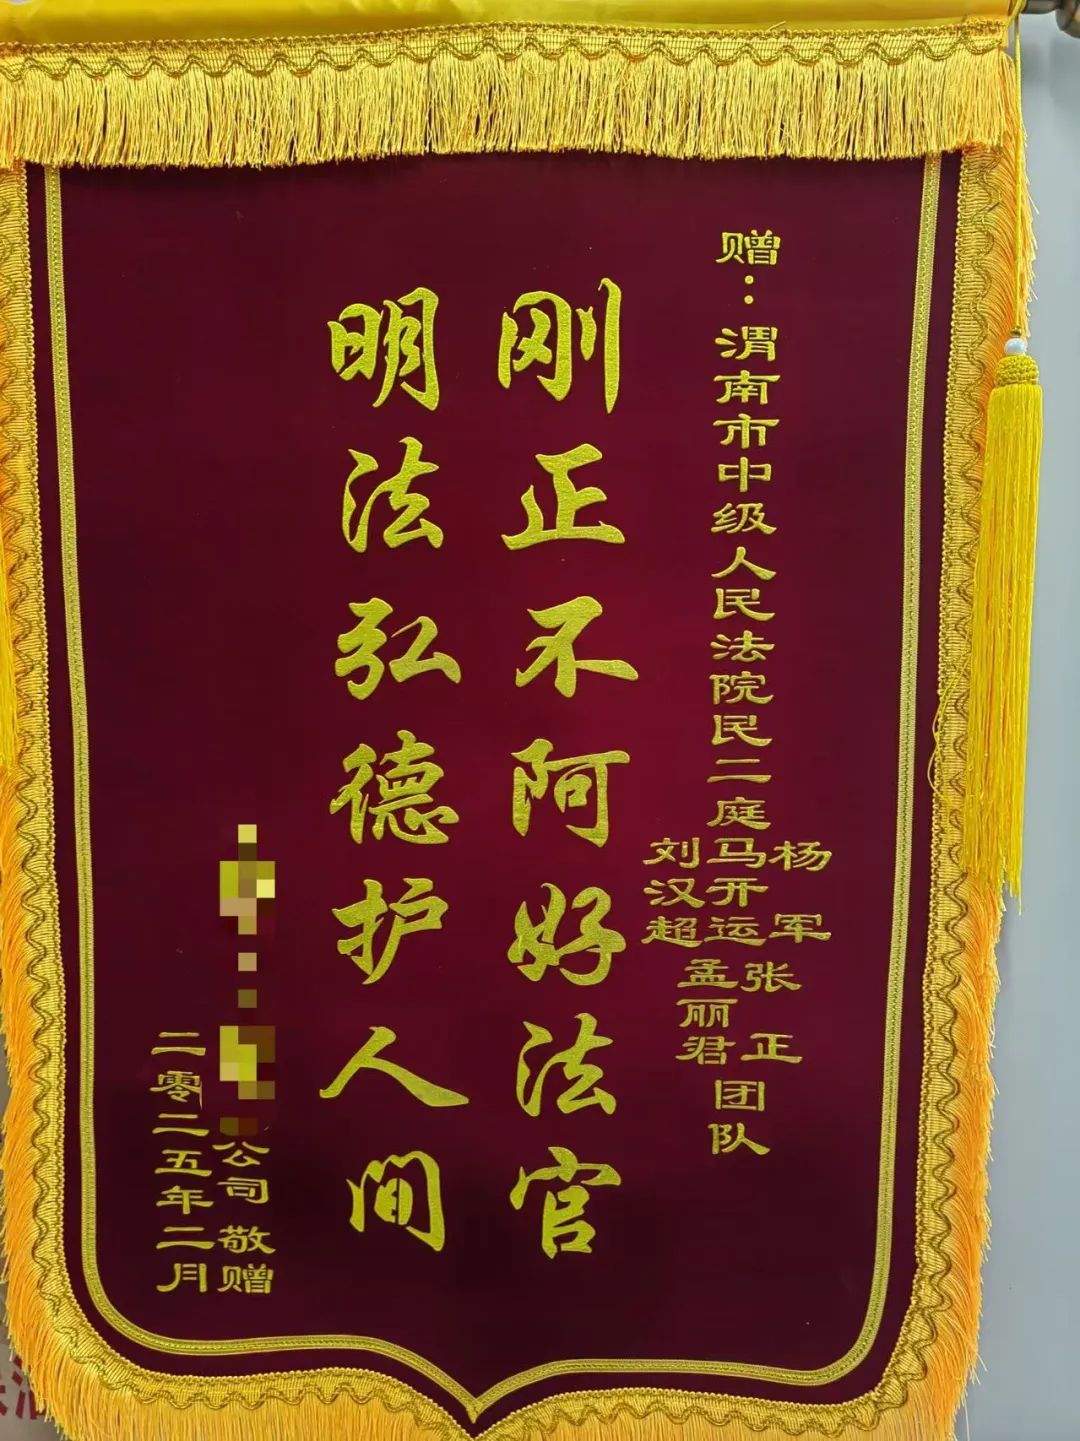 赠：渭南市中级人民法院民二庭
杨军
马开运
刘汉超
张正
孟丽君
团队
刚正不阿好法官
明法弘德护人间
公司敬赠
二零二五年二月